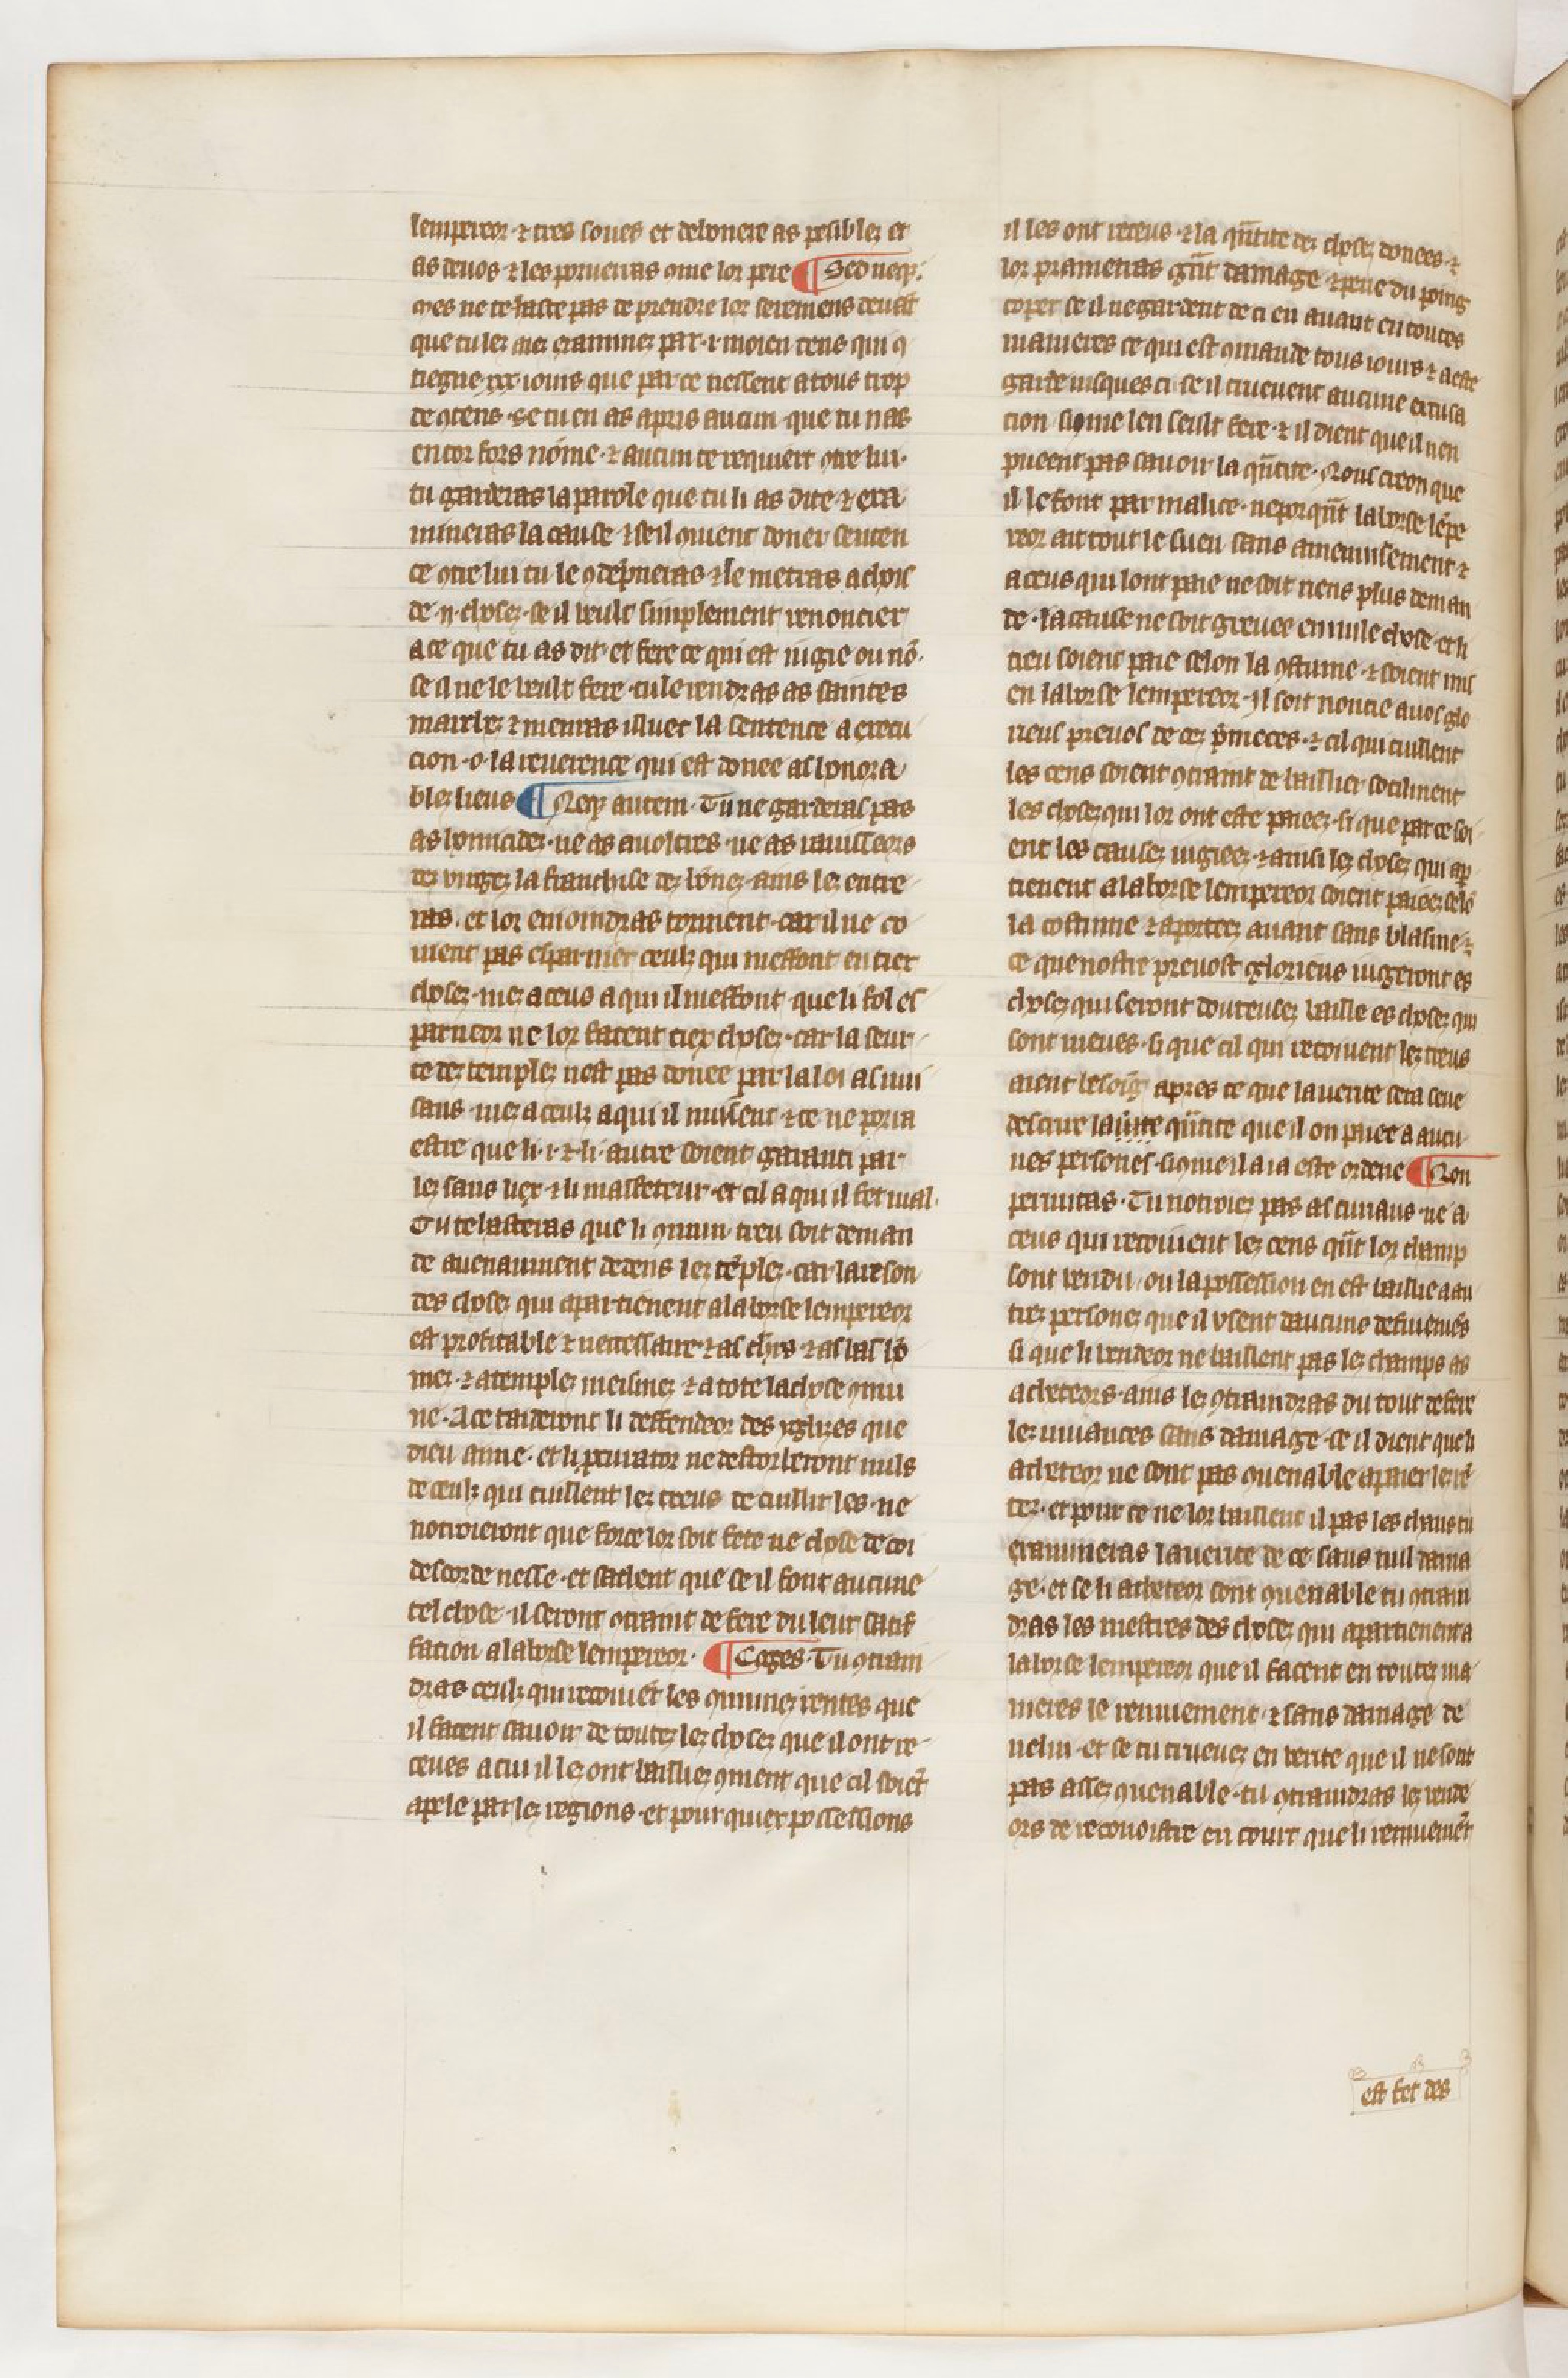 lempereor ⁊ tres soues et debonere as pesiblez et
as deuos ⁊ les poruerras ꝯme lor pere ¶ Sed neqꝫ.
Mes ne te haste pas de prendre lor seremens deuāt
que tu lez aiez examinez par .i. moien tens qui ꝯ
tiegne .xx. iours que par ce nessent a tous trop
de ꝯtens. Se tu en as apris aucun que tu nas
encor fors nōme. ⁊ aucun te requiert ꝯtre lui.
tu garderas la parole que tu li as dite ⁊ exa
mineras la cause ⁊ seil ꝯuient doner senten
ce ꝯtre lui tu le ꝯdēpneras ⁊ le metras a chois
de .ii. choses. se il veult simplement renoncier
a ce que tu as dit. et fere ce qui est iugie ou nō.
se il ne le veult fere. tu le rendras as saintes
mairlez ⁊ menras illuec la sentence a execu
cion .o. la reuerence qui est donee as honora
blez lieus ¶ Neqꝫ autem. Tu ne garderas pas
as homicidez. ne as auoltres. ne as rauisseors
dez virgez la franchise dez bōnez. ains lez entre
ras. et lor enioindras torment. car il ne co
uient pas esparnier ceulz qui meffont en tiex
chosez. mez a ceus a qui il meffont que li fol es
parneor ne lor facent tiex chosez. car la seur
te dez templez nest pas donee par la loi as nui
sans. mez a ceulz a qui il nuisent ⁊ ce ne porra
estre que li .i. ⁊ li autre soient garanti par
lez sains liex ⁊ li malfeteur. et cil a qui il fet mal.
Tu te hasteras que li ꝯmun treu soit deman
de auenaument dedens lez tēplez. car la reson
des chosez qui apartienent a la borse lempereor
est profitable ⁊ necessaire ⁊ as ch̄rs ⁊ as lais hō
mez. ⁊ a templez meismez ⁊ a tote la chose ꝯmu
ne. A ce taideront li deffendeor des yglizes que
dieu aime. et li procurator ne destorberont nuls
de ceulz qui cuillent lez treus de cuillir les. ne
notroieront que force lor soit fete ne chose de coi
descorde nesse. et sachent que se il font aucune
tel chose. il seront ꝯtraint de fere du leur satif
facion a la borse lempereor. ¶ Coges. Tu ꝯtrain
dras ceulz qui recoiuēt les ꝯmunez rentes que
il facent sauoir de toutez lez chosez que il ont re
ceues a cui il lez ont bailliez ꝯment que cil soiēt
apele par lez regions. et pour quiex possessions
il les ont receus. ⁊ la qūtite dez chosez donees. ⁊
lor prametras grāt damage ⁊ peine du poing
coper se il ne gardent de ci en auant en toutes
manieres ce qui est ꝯmande tous iours ⁊ a este
garde iusques ci. se il trueuent aucune excusa
cion sicꝯme len seult fere. ⁊ il dient que il nen
pueent pas sauoir la qūtite. Nous creon que
il le font par malice. neporqūt la borse lēpe
reor ait tout le sueu sans amenuisement. ⁊
a ceus qui lont paie ne soit riens plus deman
de. la cause ne soit greuee en nule chose. et li
treu soient paie selon la ꝯstume. ⁊ soient mis
en la borse lempereor. Il soit noncie a uos glo
rieus preuos de cez p̄meces. ⁊ cil qui cuillent
les cens soient ꝯtraint de baillier sotilment
les chosez qui lor ont este paieez. si que par ce soi
ent les causez iugieez. ⁊ ainsi lez chosez qui ap
tienent a la borse lempereor soient paieez selō
la costume ⁊ aportez auant sans blasme. ⁊
ce que nostre preuost glorieus iugeront es
chosez qui seront douteusez vaille es chosez qui
sont meues. si que cil qui recoiuent lez treus
aient le soīg apres ce que la uerite sera seue
descrire la qūtite que il on paiee a aucu
nes persones. sicꝯme il a ia este ordene ¶ Non
permitas. Tu notroiez pas as curiaus ne a
ceus qui recoiuent lez cens qūt lor champ
sont vendu. ou la possession en est bailliee a au
trez personez que il vsent daucuns
si que li vendeor ne baillent pas lez champs as
acheteors. ains lez ꝯtraindras du tout de fere
lez muances sans damage. se il dient que li
acheteor ne sont pas ꝯuenable a paier le rē
tez. et pour ce ne lor baillent il pas les chans tu
examineras la uerite de ce sans nul dama
ge. et se li acheteor sont ꝯuenable tu ꝯtrain
dras les mestres des chosez qui apartienent a
la borse lempereor que il facent en toutez ma
nieres le remuement. ⁊ sans damage de
nelui. et se tu trueuez en verite que il ne sont
pas assez ꝯuenable. tu ꝯtraindras lez vende
ors de reconoistre en court que li remuemēt
est fet des